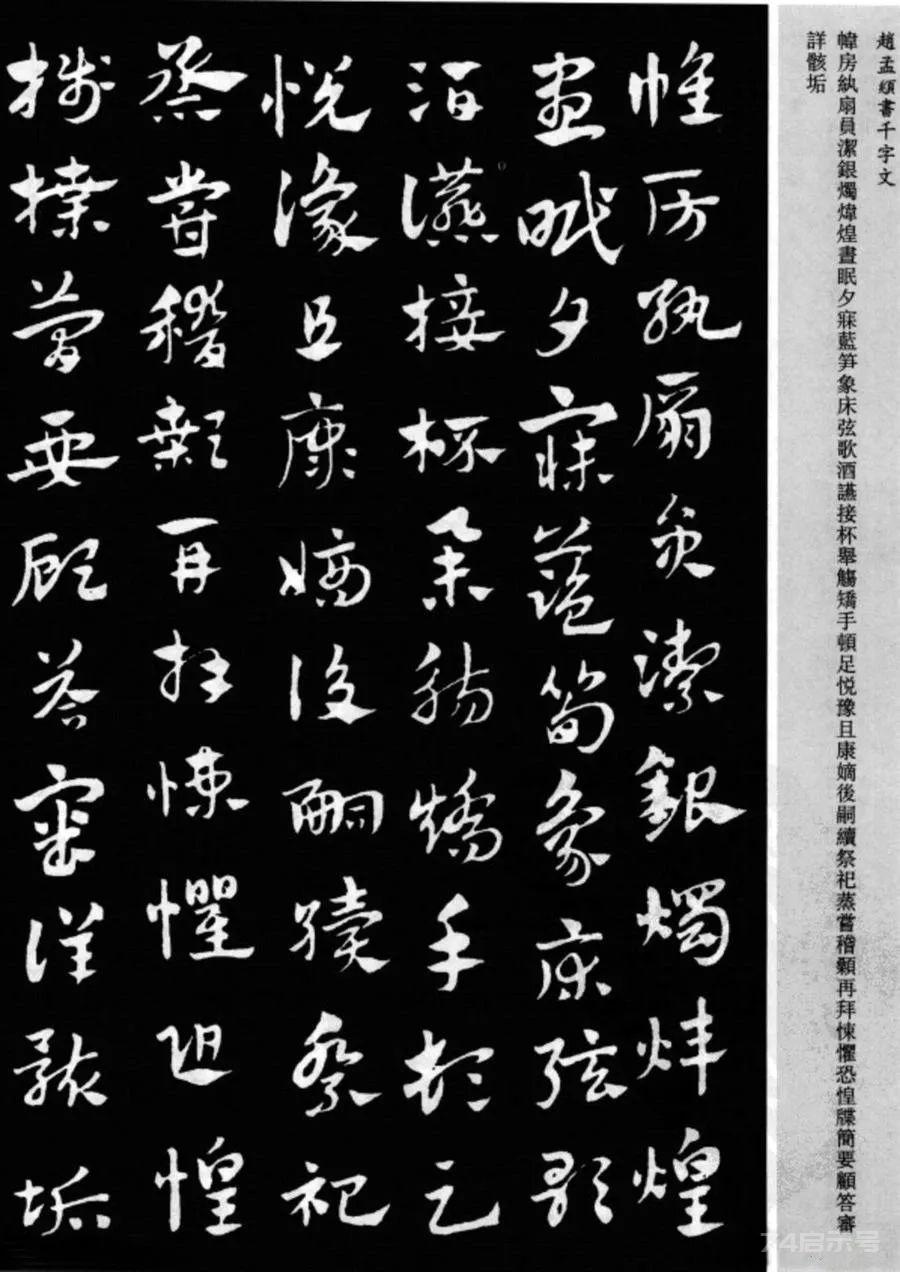 趙孟頫書千字文
幃房紈扇員潔銀燭煒煌晝眠夕寐藍笋象床弦歌酒讌接杯舉觴矯手頓足悦豫且康嫡後嗣續祭祀蒸嘗稽顙再拜悚懼恐惶牒簡要顧答審
詳骸垢
帷房紈扇員潔銀燭煒煌
晝眠夕寐藍筍象床弦歌
酒讌接杯舉觴矯手頓足
悅豫且康嫡後嗣續祭祀
蒸嘗稽顙再拜悚懼恐惶
牋牒簡要顧答審詳骸垢
74启示号